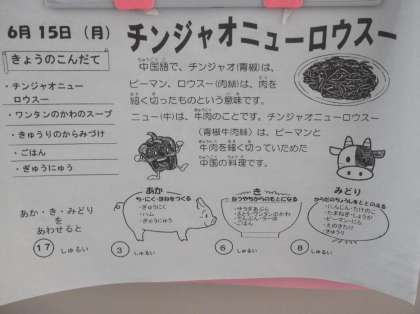 6月 15日（月）
チンジャオニューロウスー
きょうのこんだて
・チンジャオニュー
ロウスー
・ワンタンのかわのスープ
・きゅうりのからみづけ
・ごはん
・ぎゅうにゅう
中国語で、チンジャオ(青椒)は、
ピーマン、ロウスー(肉絲)は、肉を
細く切ったものという意味です。
ニュー(牛)は、牛肉のことです。チンジャオニューロウスー
(青椒牛肉絲)は、ピーマンと
牛肉を細く切っていためた
中国の料理です。
あか・き・みどり
を
あわせると
17 しゅるい
あか
ち・にく・ほねをつくる
・ぎゅうにく
・ハム
・ぎゅうにゅう
3 しゅるい
き
ねつやちからのもとになる
・ごはん
6 しゅるい
みどり
からだのちょうしをととのえる
・にんじん・たけのこ
・たまねぎ・しょうが
・ピーマン・にら
・えのきたけ
・きゅうり
8 しゅるい